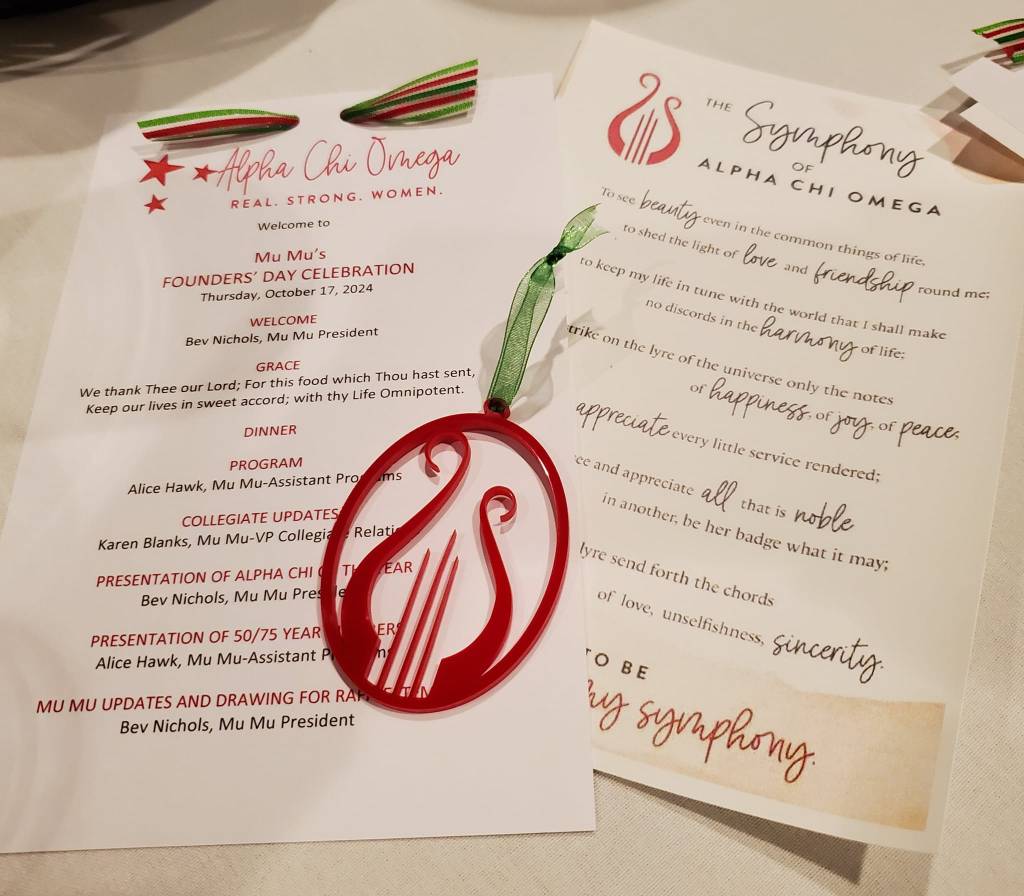 Alpha Chi Omega
REAL. STRONG. WOMEN.
Welcome to
Mu Mu's
FOUNDERS' DAY CELEBRATION
Thursday, October 17, 2024
WELCOME
Bev Nichols, Mu Mu President
GRACE
We thank Thee our Lord; For this food which Thou hast sent,
Keep our lives in sweet accord; with thy Life Omnipotent.
DINNER
PROGRAM
Alice Hawk, Mu Mu-Assistant Programs
COLLEGIATE UPDATES
Karen Blanks, Mu Mu-VP Collegiate Relati
PRESENTATION OF ALPHA CHI OF THE YEAR
Bev Nichols, Mu Mu President
PRESENTATION OF 50/75 YEAR
Alice Hawk, Mu Mu-Assistant Programs
MU MU UPDATES AND DRAWING FOR
Bev Nichols, Mu Mu President
THE Symphony
OF
ALPHA CHI OMEGA
To see beauty even in the common things of life,
to shed the light of love and friendship round me;
to keep my life in tune with the world that I shall make
no discords in the harmony of life;
trike on the lyre of the universe only the notes
of happiness, of joy, of peace;
appreciate every little service rendered;
ee and appreciate all that is noble
in another, be her badge what it may;
lyre send forth the chords
of love, unselfishness, sincerity.
TO BE
my symphony.